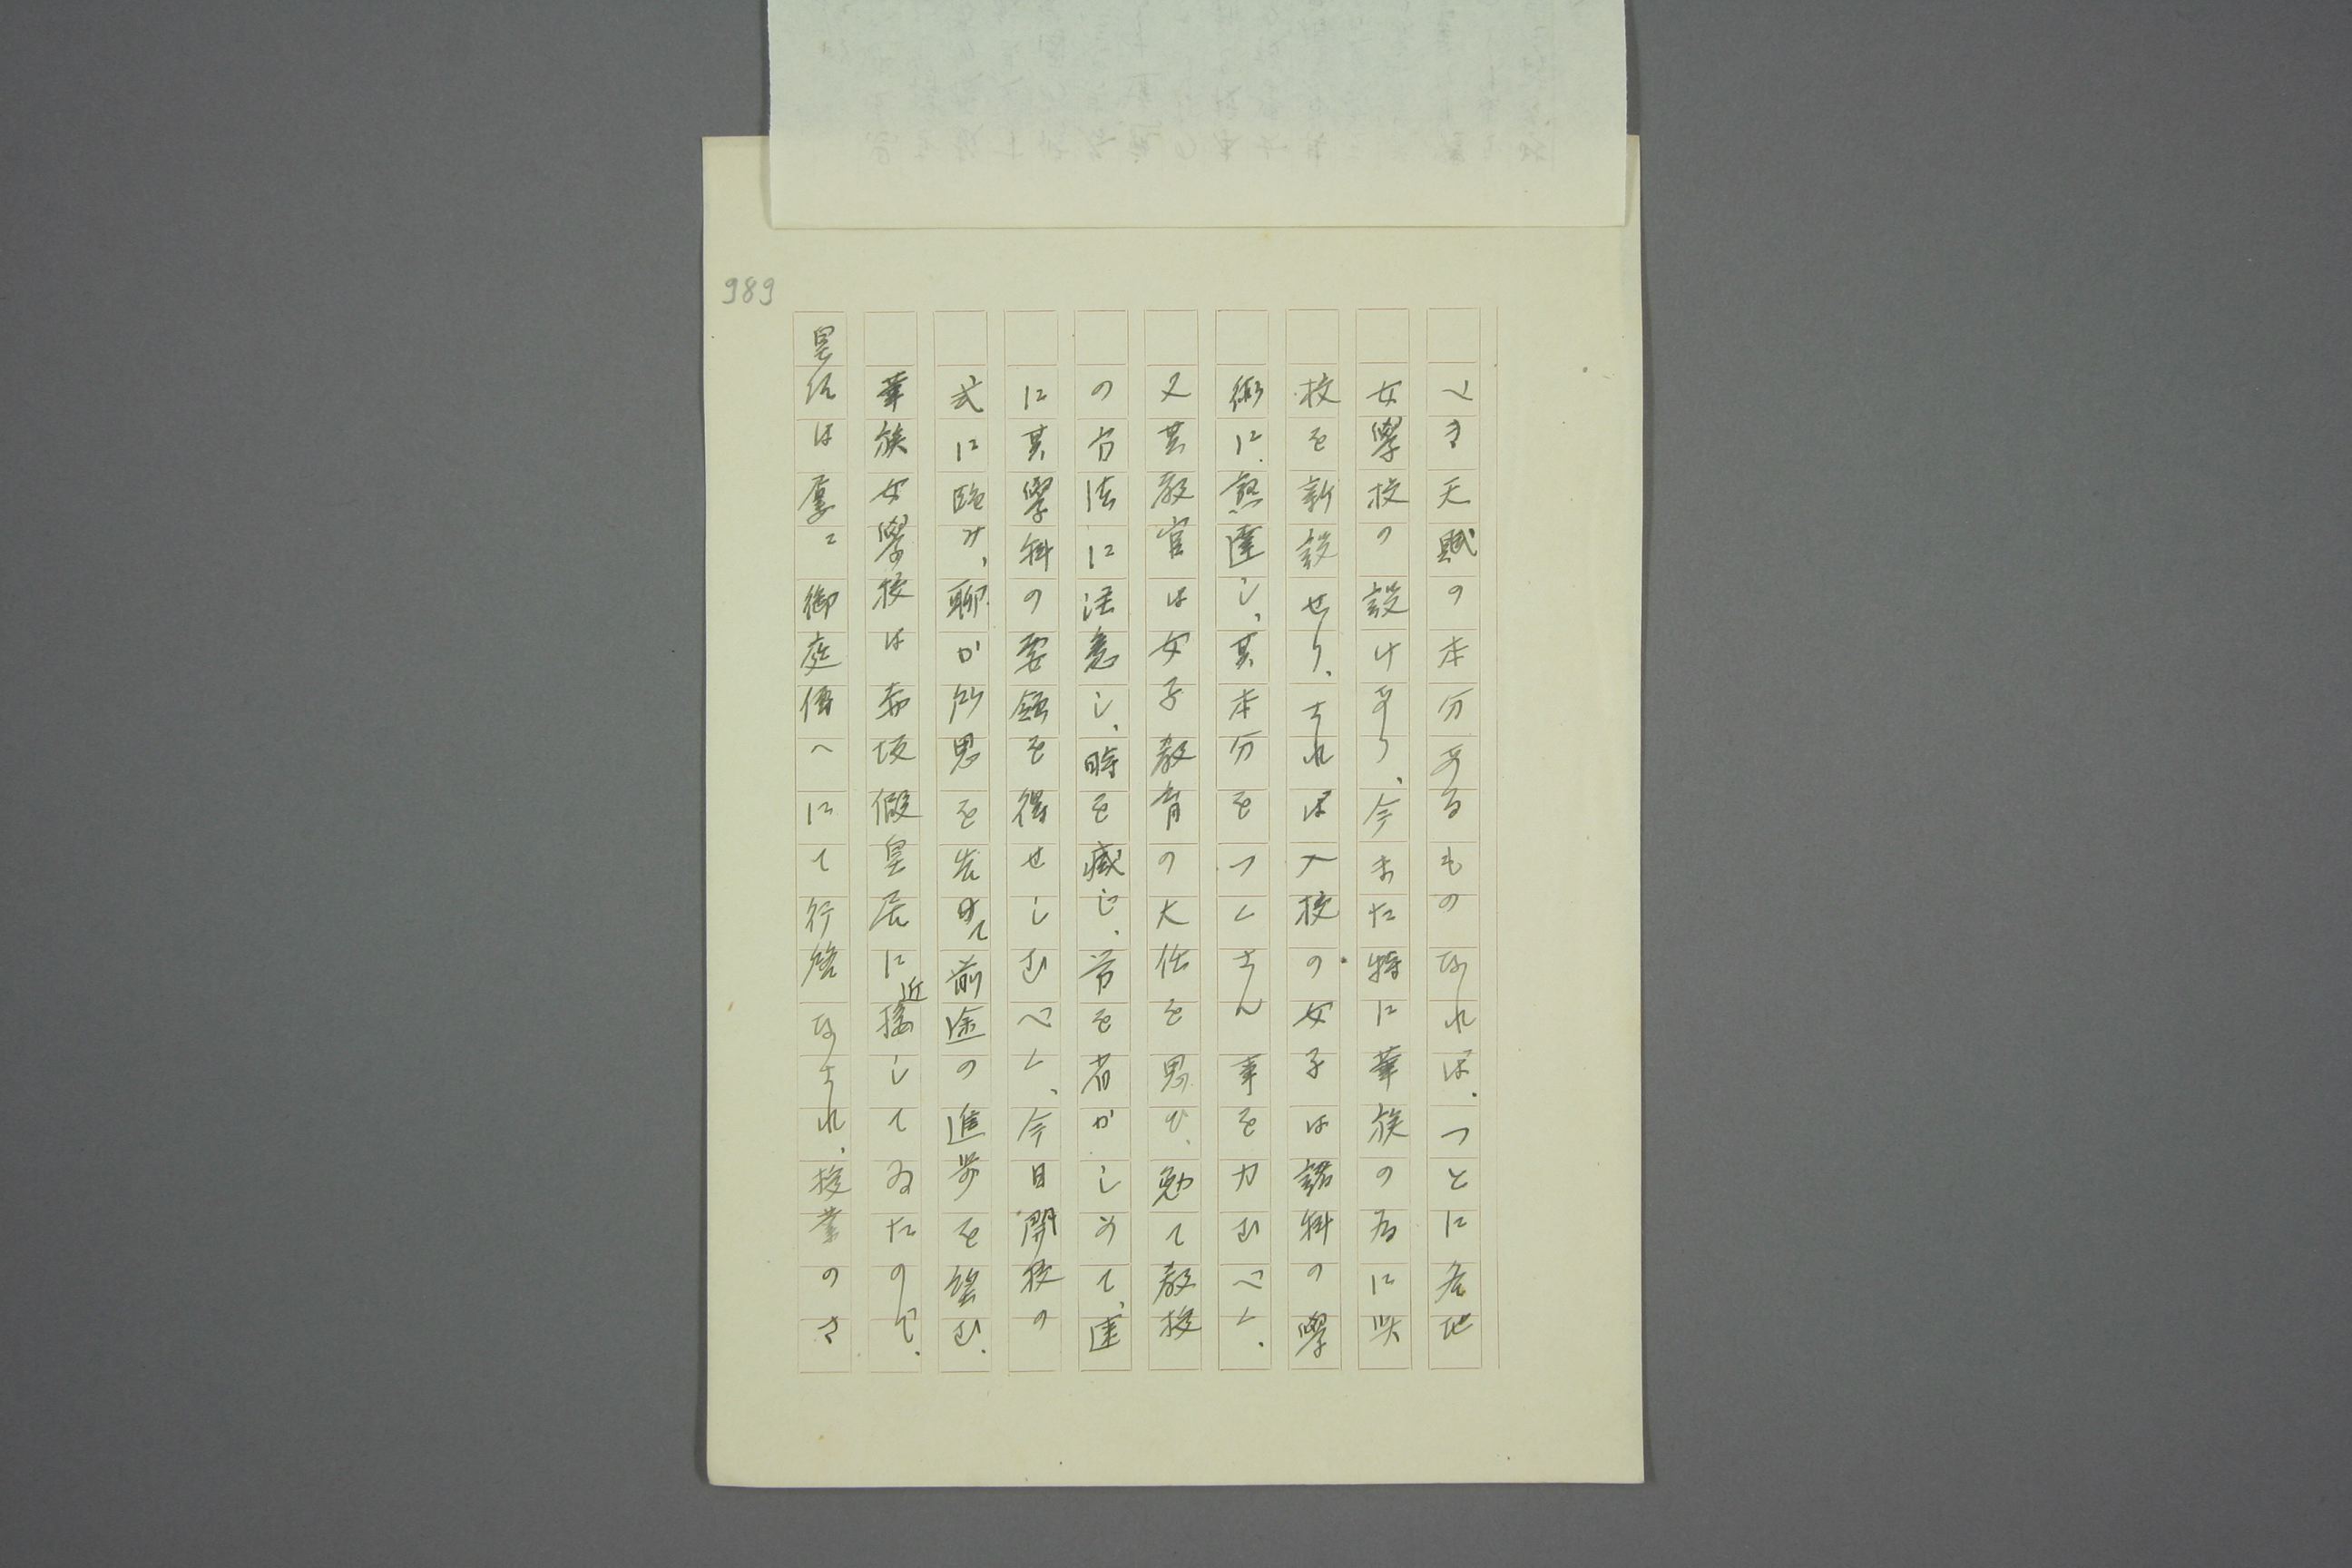 989
べき天賦の本分あるものなれば、つとに各地
女學校の設けあり、今また特に華族の為に此
校を新設せり、されば入校の女子は諸科の學
術に熟達し、其本分をつくさん事を力むべく、
又其教官は女子教育の大任を思ひ、勉て教授
の方法に注意し、時を減じ、労を省かしめて、速
に其學科の要領を得せしむべく、今日開校の
式に臨み、聊か所思を告げて前途の進歩を望む、
華族女學校は赤坂假皇居に近接してゐたので、
皇后は屢〻御庭傳へにて行啓なされ、授業のさ